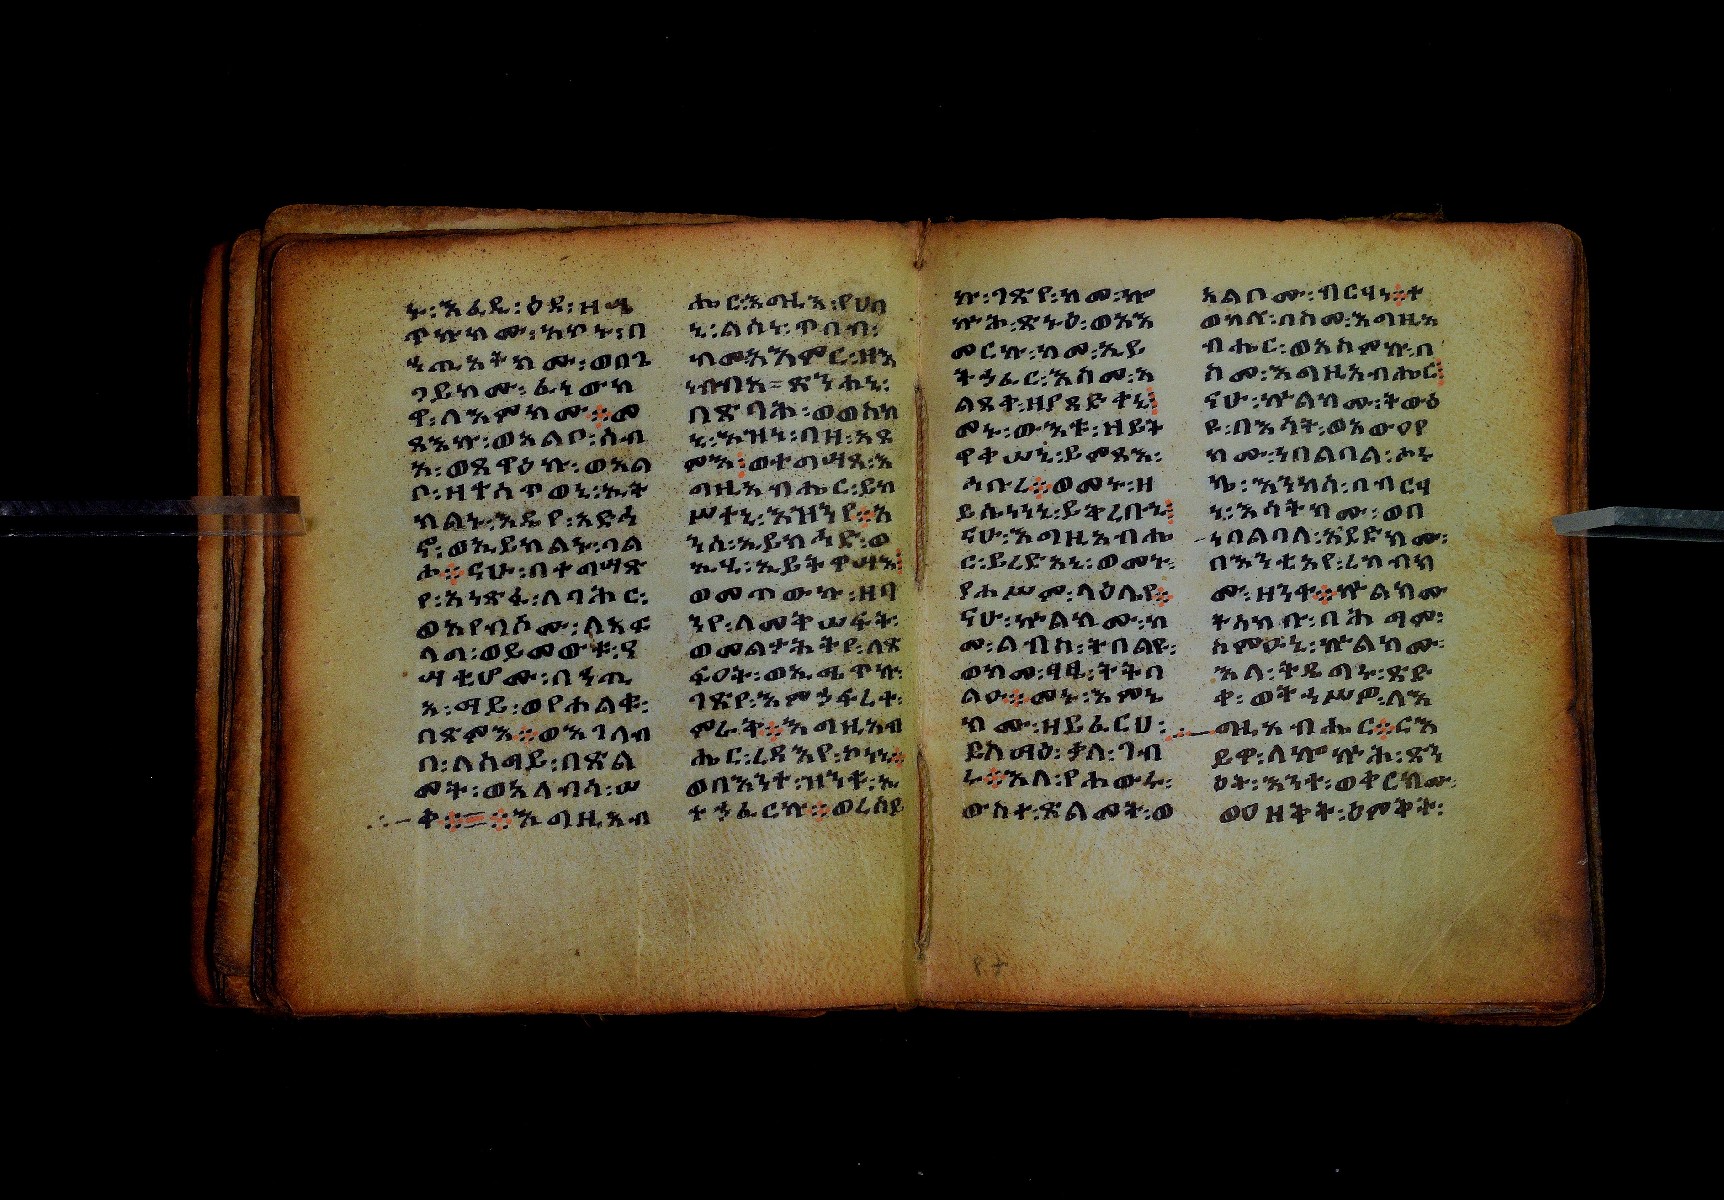 ኑ፡እፈዲ፡ዕዳ፡ዘሤ
ጥኩክሙ፡አኮኑ፡በ
ኃጢአትክሙ፡ወበጌ
ጋይክሙ፡ፈነውክ
ዋ፡ለእምክሙ፨መ
ጻእኩ፡ወአልቦ፡ሰብ
አ፡ወጸዋዕኩ፡ወአል
ቦ፡ዘተሰጥወኒ፡ኢት
ክልኑ፡እዴየ፡አድኅ
ኖ፡ወኢይክልኑ፡ባል
ሖ፨ናሁ፡በተግሣጽ
የ፡አነጽፋ፡ለባሕር፡
ወአየብሶሙ፡ለአፍ
ላግ፡ወይመውቱ፡ዓ
ሣቲሆሙ፡በኃጢ
አ፡ማይ፡ወየሐልቁ፡
በጽምእ፨ወእገለብ
ቦ፡ለሰማይ፡በጽል
መት፡ወአለብሳ፡ሠ
ቀ፨፨እግዚአብ
ሔር፡እግዚእ፡የሀበ
ኒ፡ልሳነ፡ጥበብ፡
ከመአእምር፡ዘእ
ነብብአ፡ጽንሐኒ፡
በጽባሕ፡ወወሰከ
ኒ፡እዝነ፡በዘ፡እጸ
ምእ፡ወተግሣጸ፡እ
ግዚአብሔር፡ይከ
ሥተኒ፡እዝንየ፨አ
ንሰ፡ኢይክሕድ፡ወ
ኢሂ፡ኢይትዋሣእ፡
ወመጦውኩ፡ዘባ
ንየ፡ለመቅሠፍት፡
ወመልታሕትየ፡ለጽ
ፍዐት፡ወኢሜጥኩ፡
ገጽየ፡እምኃፍረተ፡
ምራቅ፨እግዚአብ
ሔር፡ረዳእየ፡ኮነኒ፨
ወበእንተ፡ዝንቱ፡ኢ
ተኃፈርኩ፨ወረሰይ
ኩ፡ገጽየ፡ከመ፡ኰ
ኵሕ፡ጽኑዕ፡ወአእ
መርኩ፡ከመ፡ኢይ
ትኃፈር፡እስመ፡አ
ልጸቀ፡ዘያጸድቀኒ፡
መኑ፡ውእቱ፡ዘይት
ዋቀሠኒ፡ይምጻእ፡
ኅቡረ፨ወመኑ፡ዘ
ይስነነኒ፡ይቅረበኒ፡
ናሁ፡እግዚአብሔ
ር፡ይረድአኒ፡ወመኑ፡
የሐሥም፡ላዕሌየ፨
ናሁ፡ኵልክሙ፡ከ
መ፡ልብስ፡ትበልዩ፡
ወከመ፡ዳዴ፡ትትበ
ልዑ፨መኑ፡እምኔ
ክሙ፡ዘይፈርሀ፡
ይስማዕ፡ቃለ፡ገብ
ሩ፨እለ፡የሐውሩ፡
ውስተ፡ጽልመት፡ወ
አልቦሙ፡ብርሃነ፨ተ
ወከሉ፡በስመ፡እግዚአ
ብሔር፡ወአስምኩ፡በ
ስመ፡እግዚአብሔር፡
ናሁ፡ኵልክሙ፡ትውዕ
ዩ፡በእሳት፡ወአውዐየ
ክሙ፡ነበልባል፡ሖሩ
ኬ፡እንከሰ፡በብርሃ
ነ፡እሳትክሙ፡ወበ
ነበልባለ፡አንደድክሙ፡
በእንቲአየ፡ረከብክ
ሙ፡ዘንተ፨ኵልክሙ
ትሰክቡ፡በሕማም፡
ስምዑኒ፡ኵልክሙ፡
እለ፡ትዴግኑ፡ጽድ
ቀ፡ወትኃሥሥዎ፡ለእ
ግዚአብሔር፨ርእ
ይዋ፡ለኰኵሕ፡ጽን
ዕት፡እንተ፡ወቀርክሙ፡
ወዐዘቅት፡ዕምቅት፡